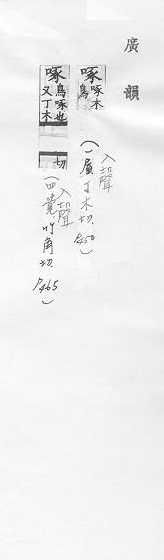 廣韻
啄 啄木
鳥
入聲
(一屋丁木切. P450)
啄 鳥啄也
又丁木
切
入聲
(四覺.竹角切. P465)